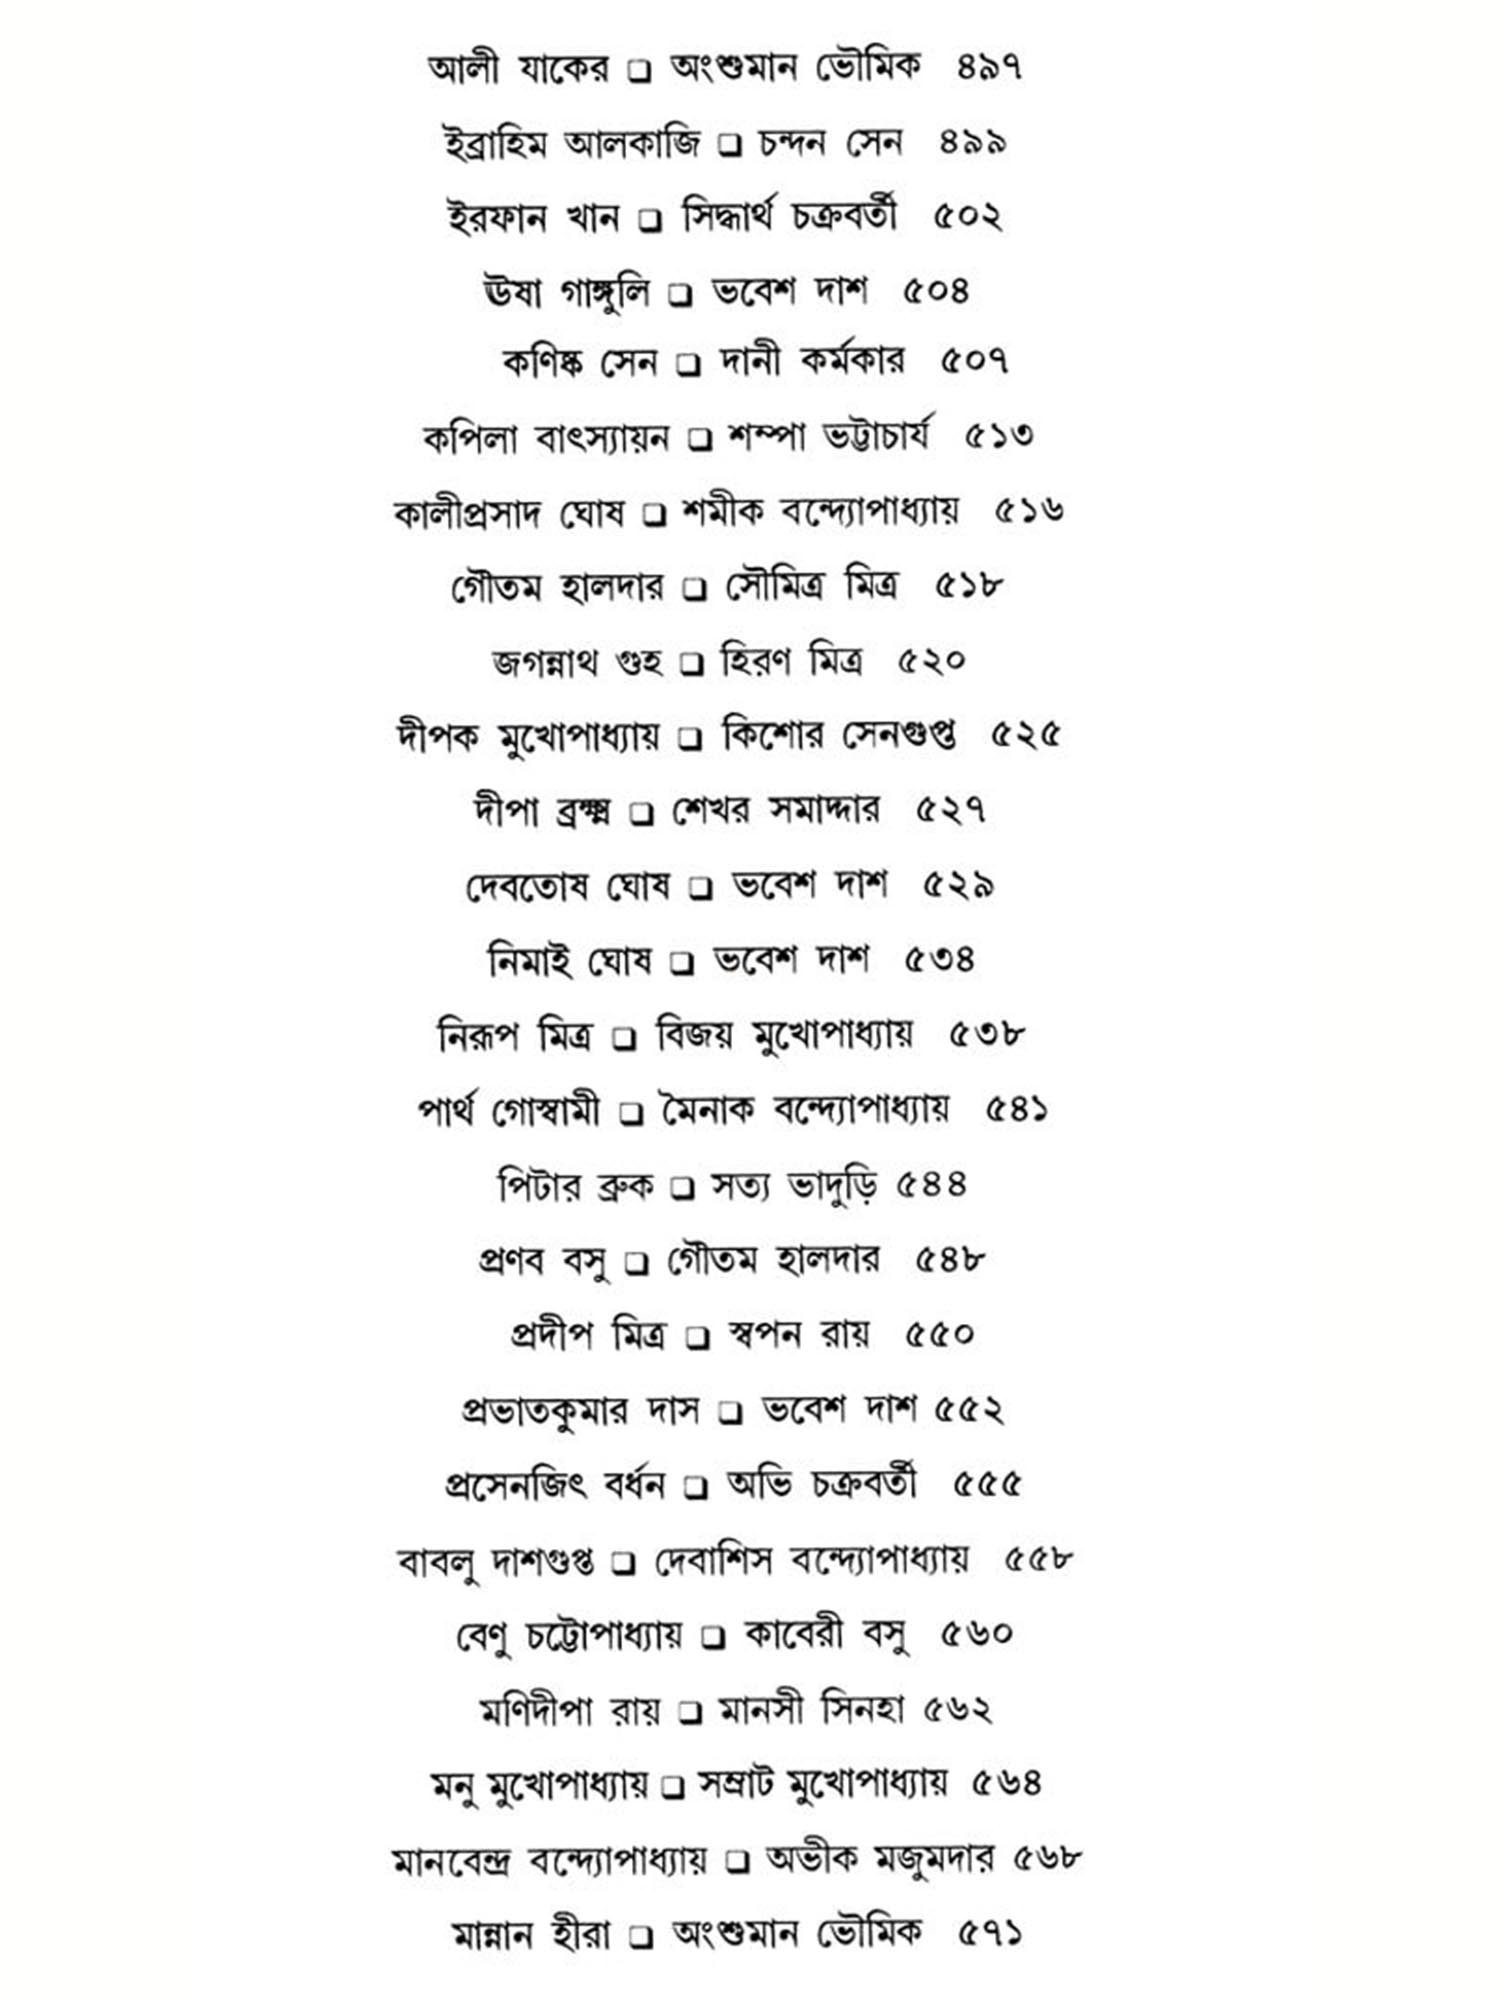 আলী যাকের ❏ অংশুমান ভৌমিক ৪৯৭
ইব্রাহিম আলকাজি ❏ চন্দন সেন ৪৯৯
ইরফান খান ❏ সিদ্ধার্থ চক্রবর্তী ৫০২
ঊষা গাঙ্গুলি ❏ ভবেশ দাশ ৫০৪
কণিষ্ক সেন ❏ দানী কর্মকার ৫০৭
কপিলা বাৎস্যায়ন ❏ শম্পা ভট্টাচার্য ৫১৩
কালীপ্রসাদ ঘোষ ❏ শমীক বন্দ্যোপাধ্যায় ৫১৬
গৌতম হালদার ❏ সৌমিত্র মিত্র ৫১৮
জগন্নাথ গুহ ❏ হিরণ মিত্র ৫২০
দীপক মুখোপাধ্যায় ❏ কিশোর সেনগুপ্ত ৫২৫
দীপা ব্রহ্ম ❏ শেখর সমাদ্দার ৫২৭
দেবতোষ ঘোষ ❏ ভবেশ দাশ ৫২৯
নিমাই ঘোষ ❏ ভবেশ দাশ ৫৩৪
নিরূপ মিত্র ❏ বিজয় মুখোপাধ্যায় ৫৩৮
পার্থ গোস্বামী ❏ মৈনাক বন্দ্যোপাধ্যায় ৫৪১
পিটার ব্রুক ❏ সত্য ভাদুড়ি ৫৪৪
প্রণব বসু ❏ গৌতম হালদার ৫৪৮
প্রদীপ মিত্র ❏ স্বপন রায় ৫৫০
প্রভাতকুমার দাস ❏ ভবেশ দাশ ৫৫২
প্রসেনজিৎ বর্ধন ❏ অভি চক্রবর্তী ৫৫৫
বাবলু দাশগুপ্ত ❏ দেবাশিস বন্দ্যোপাধ্যায় ৫৫৮
বেণু চট্টোপাধ্যায় ❏ কাবেরী বসু ৫৬০
মণিদীপা রায় ❏ মানসী সিনহা ৫৬২
মনু মুখোপাধ্যায় ❏ সম্রাট মুখোপাধ্যায় ৫৬৪
মানবেন্দ্র বন্দ্যোপাধ্যায় ❏ অভীক মজুমদার ৫৬৮
মান্নান হীরা ❏ অংশুমান ভৌমিক ৫৭১